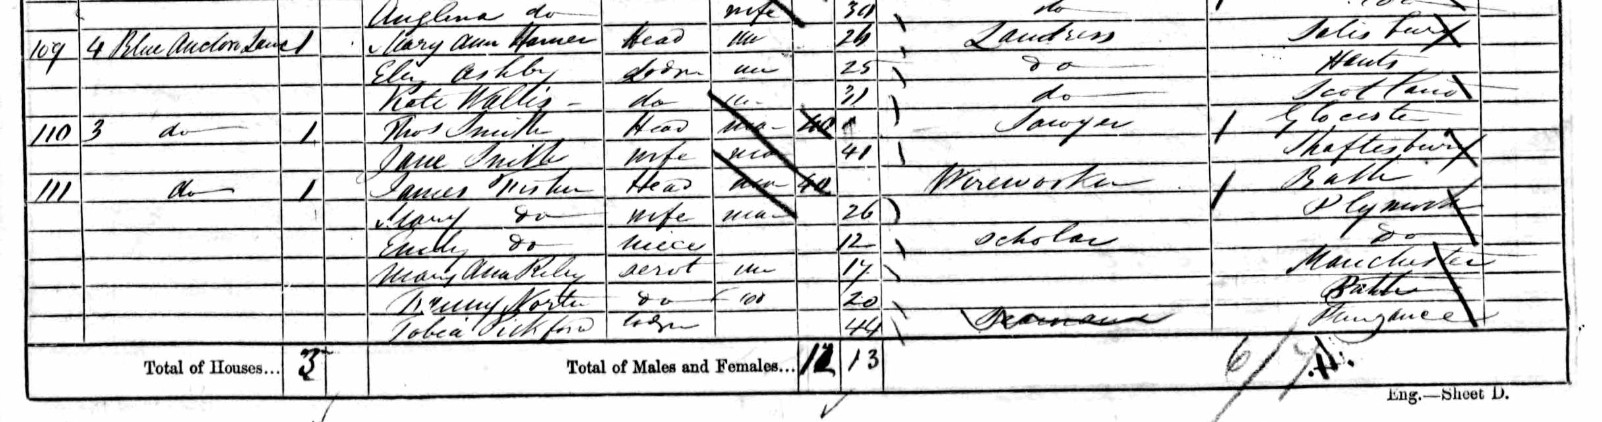 Anglena do wife 30 do
109 4 Blue Anchor Lane 1 Mary Ann Horner Head un 26 Laundress Salisbury
Eliz Ashby Lodgr un 25 do Hants
Kate Wallis do un 31 do Scotland
110 3 do 1 Thos Smith Head mar 40 Sawyer Glocester
Jane Smith wife mar 41 Shaftesbury
111 do 1 James Fisher Head mar 40 Wireworker Bath
Mary do wife mar 26 Plymouth
Emily do niece 12 scholar Do
Mary Ann Riley servt un 17 Manchester
North do 20 Bath
Pickford lodgr 44 Penzance
Total of Houses... 3 Total of Males and Females... 12 13
6/7
Eng.—Sheet D.